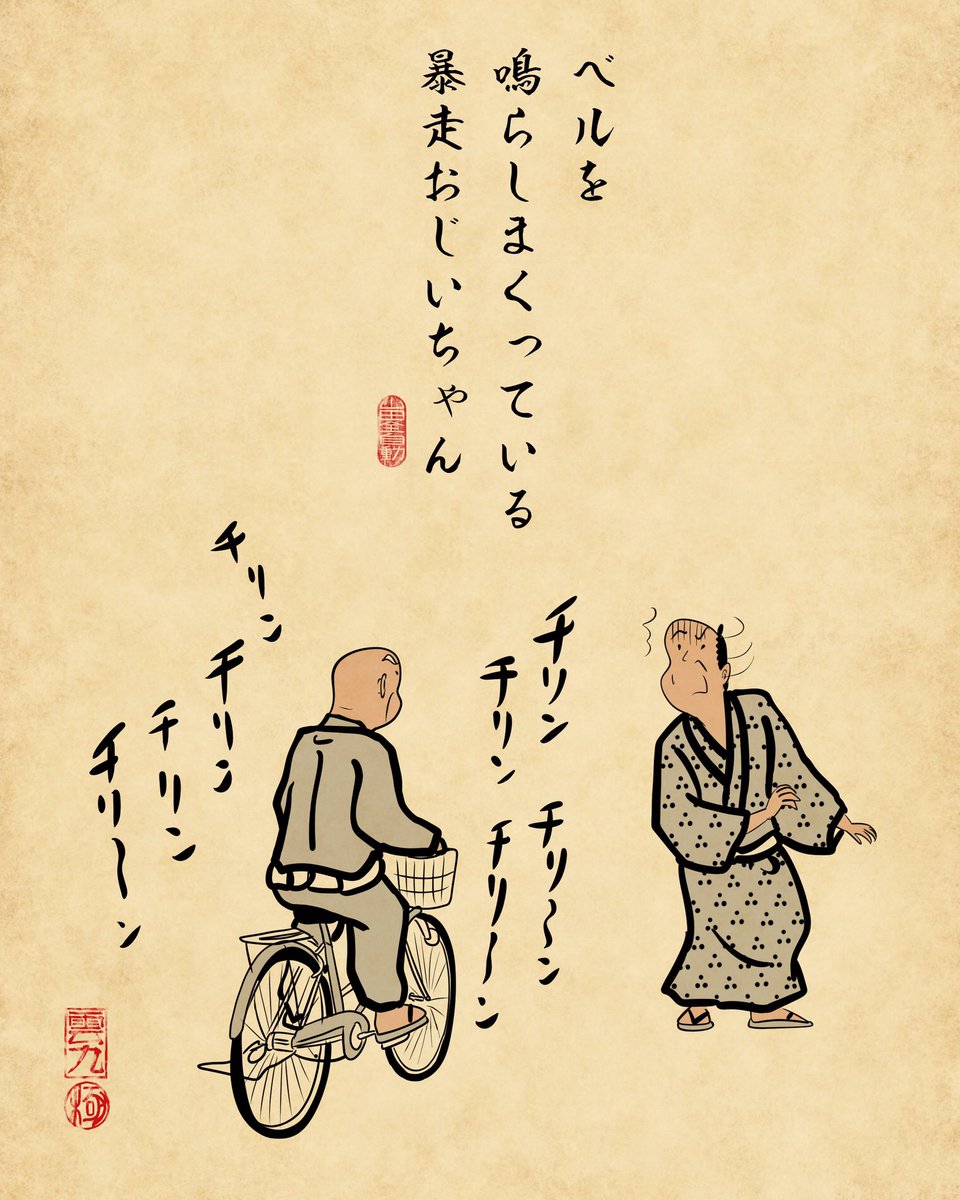 ベルを
鳴らしまくっている
暴走おじいちゃん
チリン
チリン
チリ〜ン
チリ〜ン
チリン
チリン
チリン
チリ〜ン
雲九
極